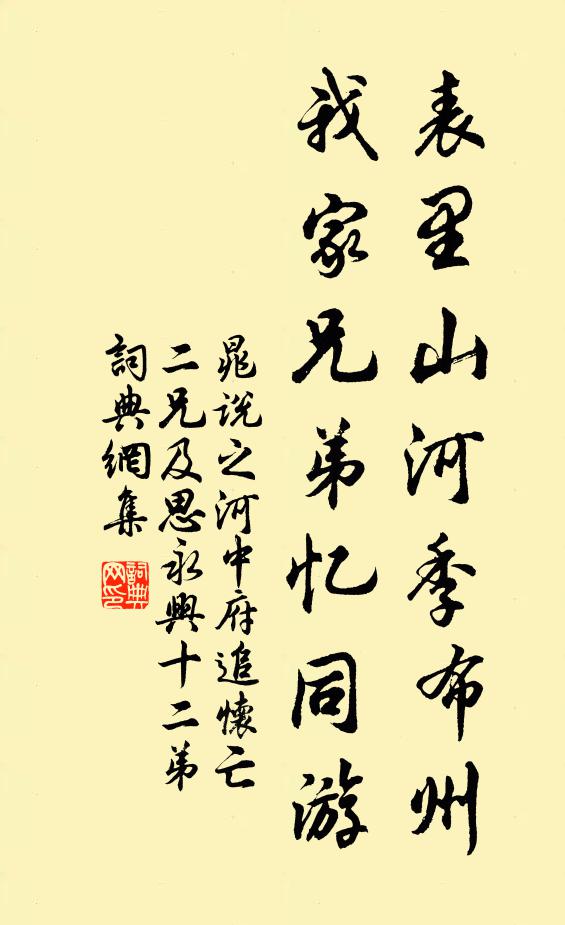 表里山河季布州
我家兄弟忆同游
晁说之河中府追懷亡
二兄及思永興十二弟
詞典網集
詞典网印